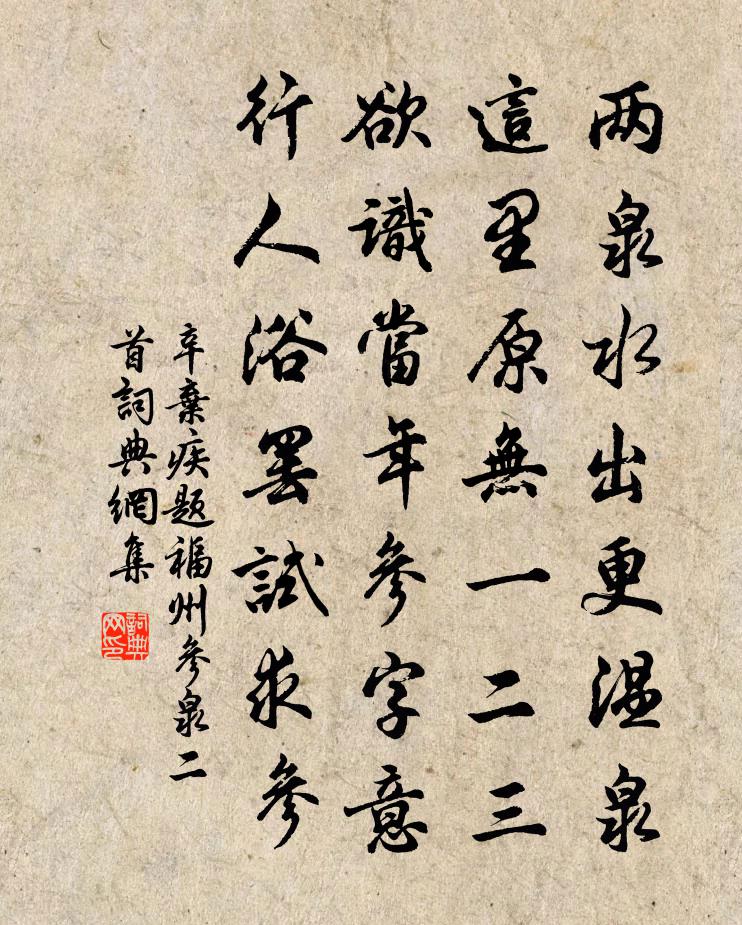 两泉水出更温泉
這里原無一二三
欲識當年參字意
行人浴罢試求參
辛棄疾题福州參泉二
首詞典網集
詞典
网印